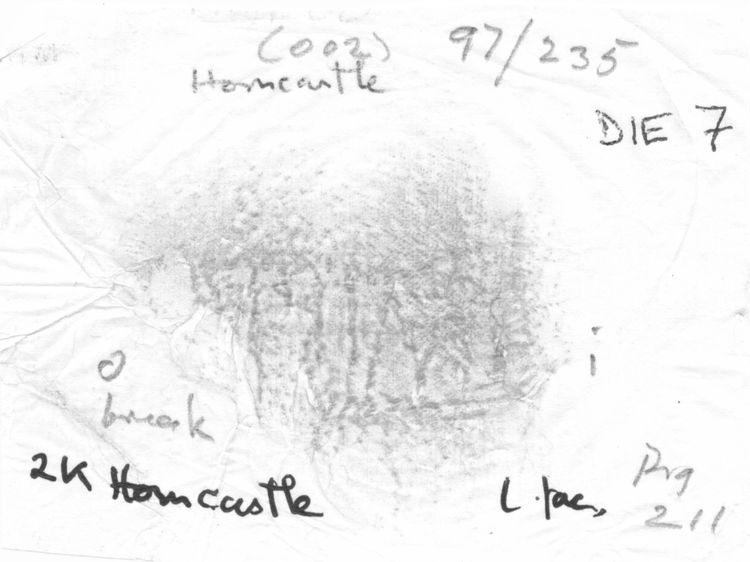 (002) 97/235
Horncastle
DIE 7
i
break
2K Horncastle
L.fac.
211